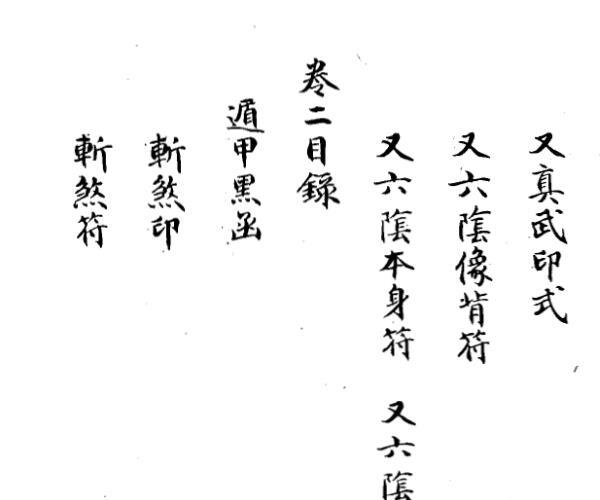 又真武印式
又六陰像背符
又六陰本身符 又六陰
卷二目錄
遁甲黑函
斬煞印
斬煞符